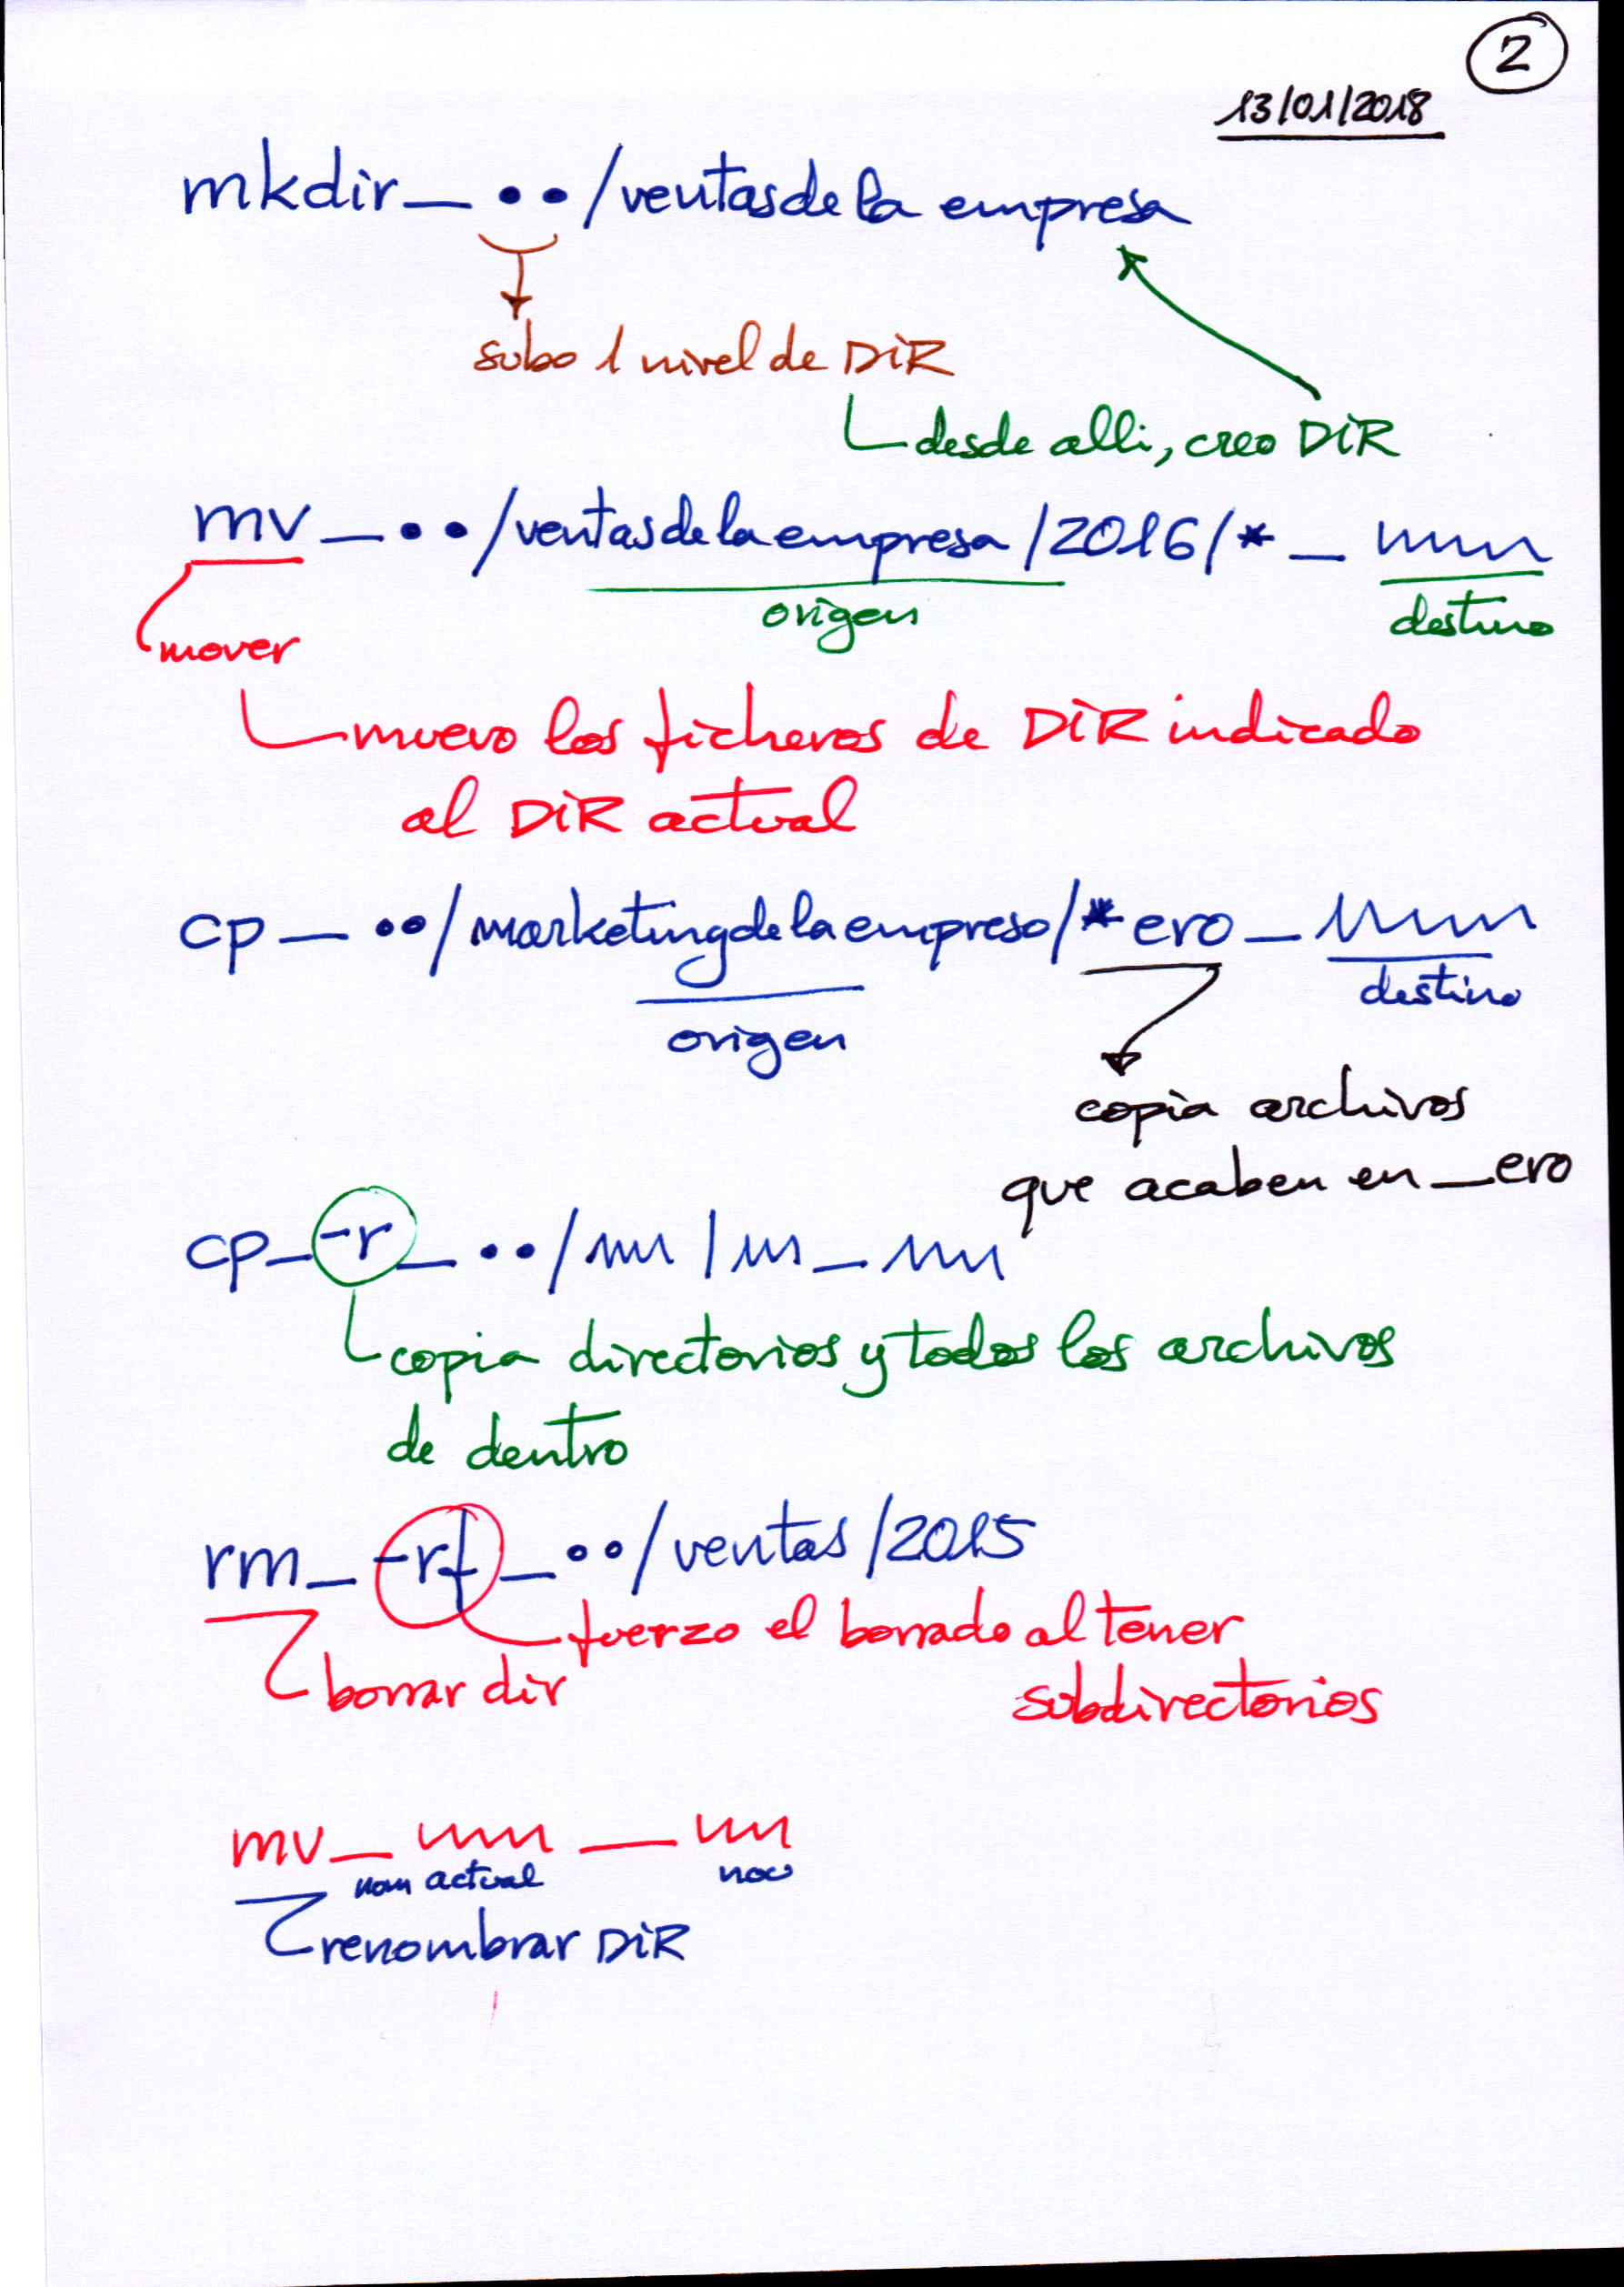 2
13/01/2018
mkdir_ ../ventasdela empresa
subo 1 nivel de DiR
desde alli, creo DiR
mv _../ventasdelaempresa/2016/* _
origen
destino
mover
muevo los ficheros de DiR indicado
al DiR actual
cp _ ../marketingdelaempresa/*ero _
origen
destino
copia archivos
que acaben en _ero
cp_-r_ ../
copia directorios y todos los archivos
de dentro
rm_ -rf _../ventas/2015
fuerzo el borrado al tener
subdirectorios
borrar dir
mv_ _
nom actual
renombrar DiR